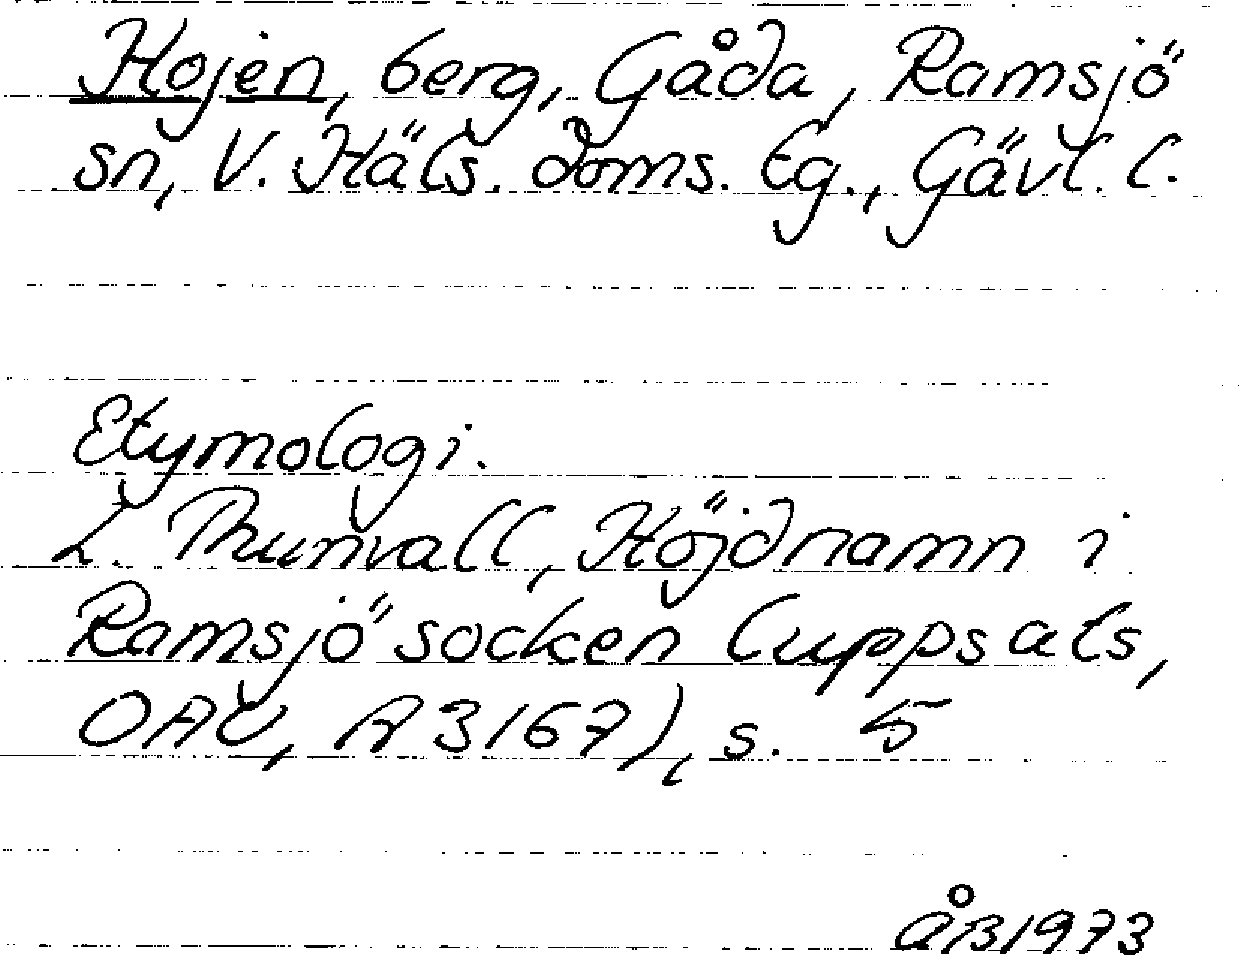 Hojen, berg, Gåda, Ramsjö
sn, V. Häls. doms. tg., Gävl. l.
Etymologi.
L. Thunvall, Höjdnamn i
Ramsjö socken (uppsats,
OAU, A 3167), s. 5
ÅB 1973